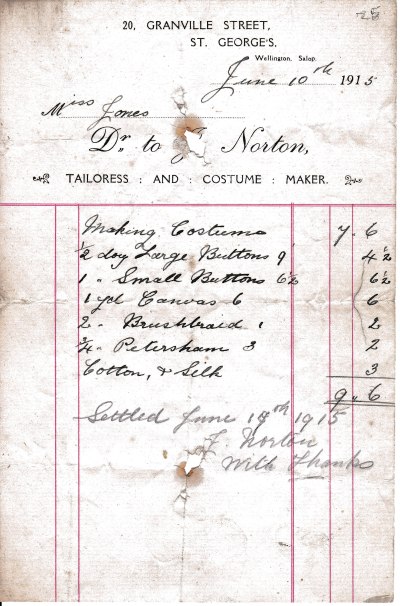 25
20, GRANVILLE STREET,
ST. GEORGE'S,
Wellington, Salop.
June 10th 1915
Miss Jones
Dr. to Norton,
TAILORESS : AND : COSTUME : MAKER.
Making Costume 7. 6
½ doz Large Buttons 9 4½
1 " Small Buttons 6½ 6½
1 yd Canvas 6 6
2 " Brushbraid 1 2
¾ " Petersham 3 2
Cotton, & Silk 3
9 " 6
Settled June 1915
F. Norton
With Thanks